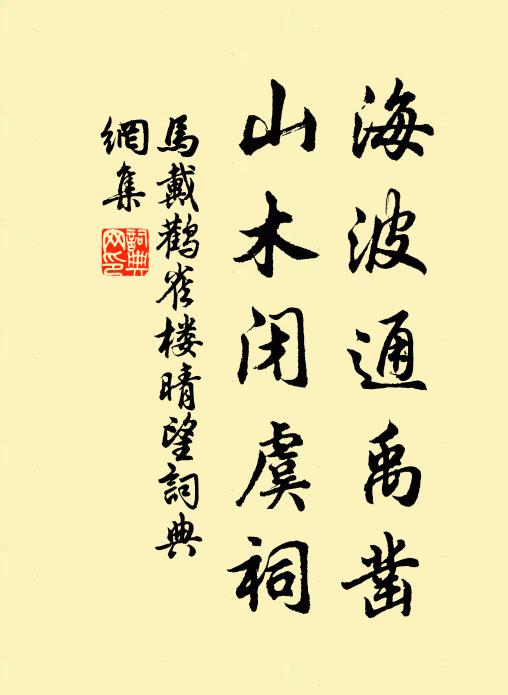 海波通禹凿
山木闭虞祠
馬戴鹳雀楼晴望詞典
網集
詞典网印